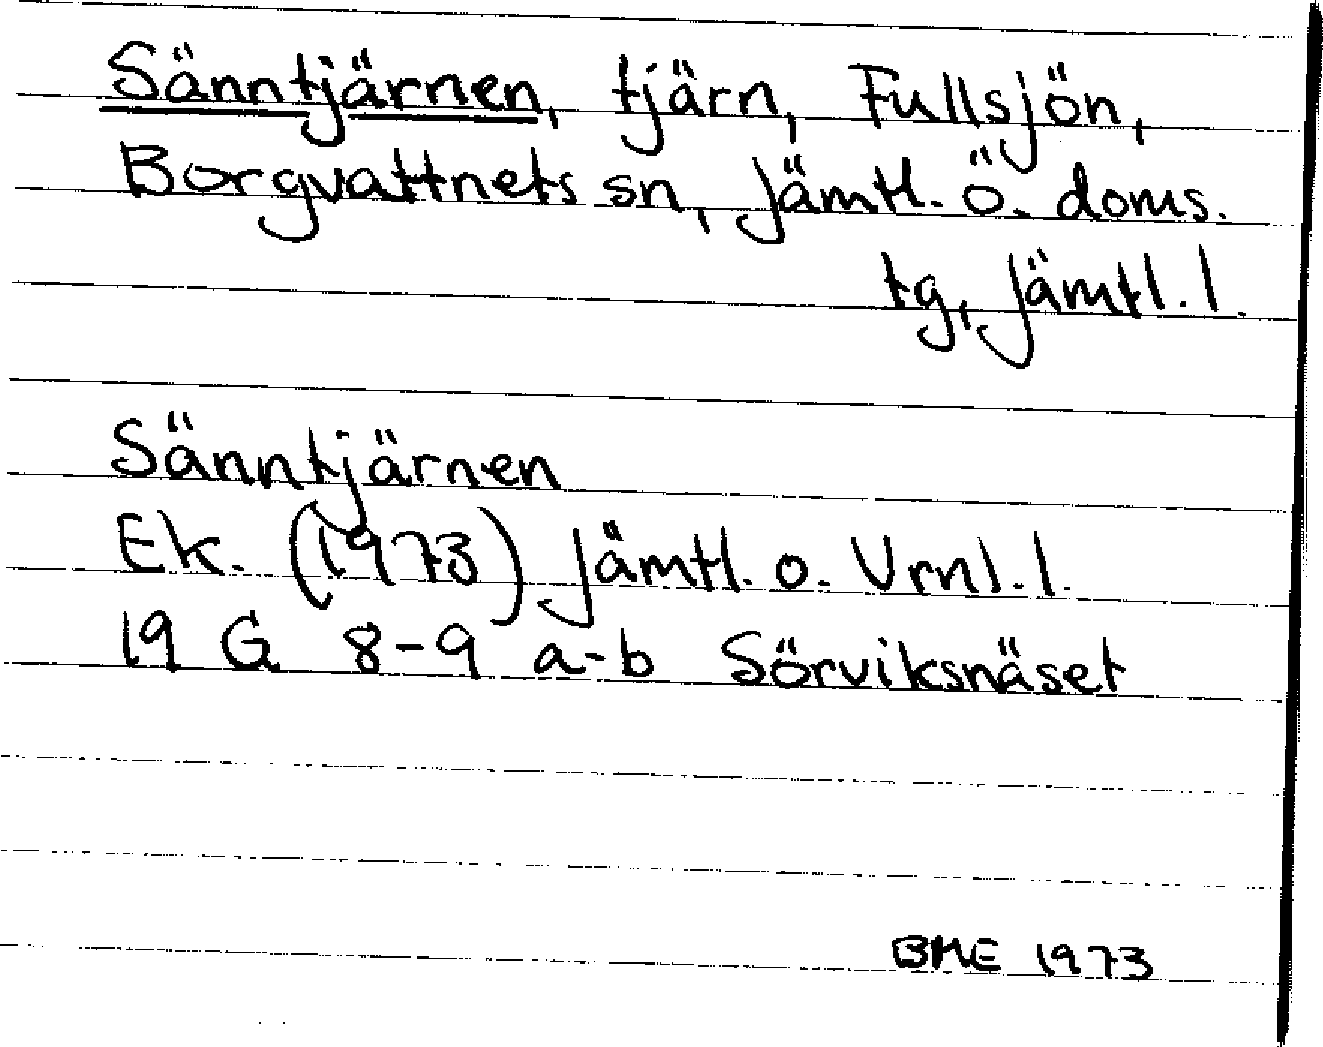 Sänntjärnen, tjärn, Fullsjön,
Borgvattnets sn, Jämtl. ö. doms.
tg, Jämtl. l.
Sänntjärnen
Ek. (1973) Jämtl. o. Vrnl. l.
19 G 8-9 a-b Sörviksnäset
BME 1973